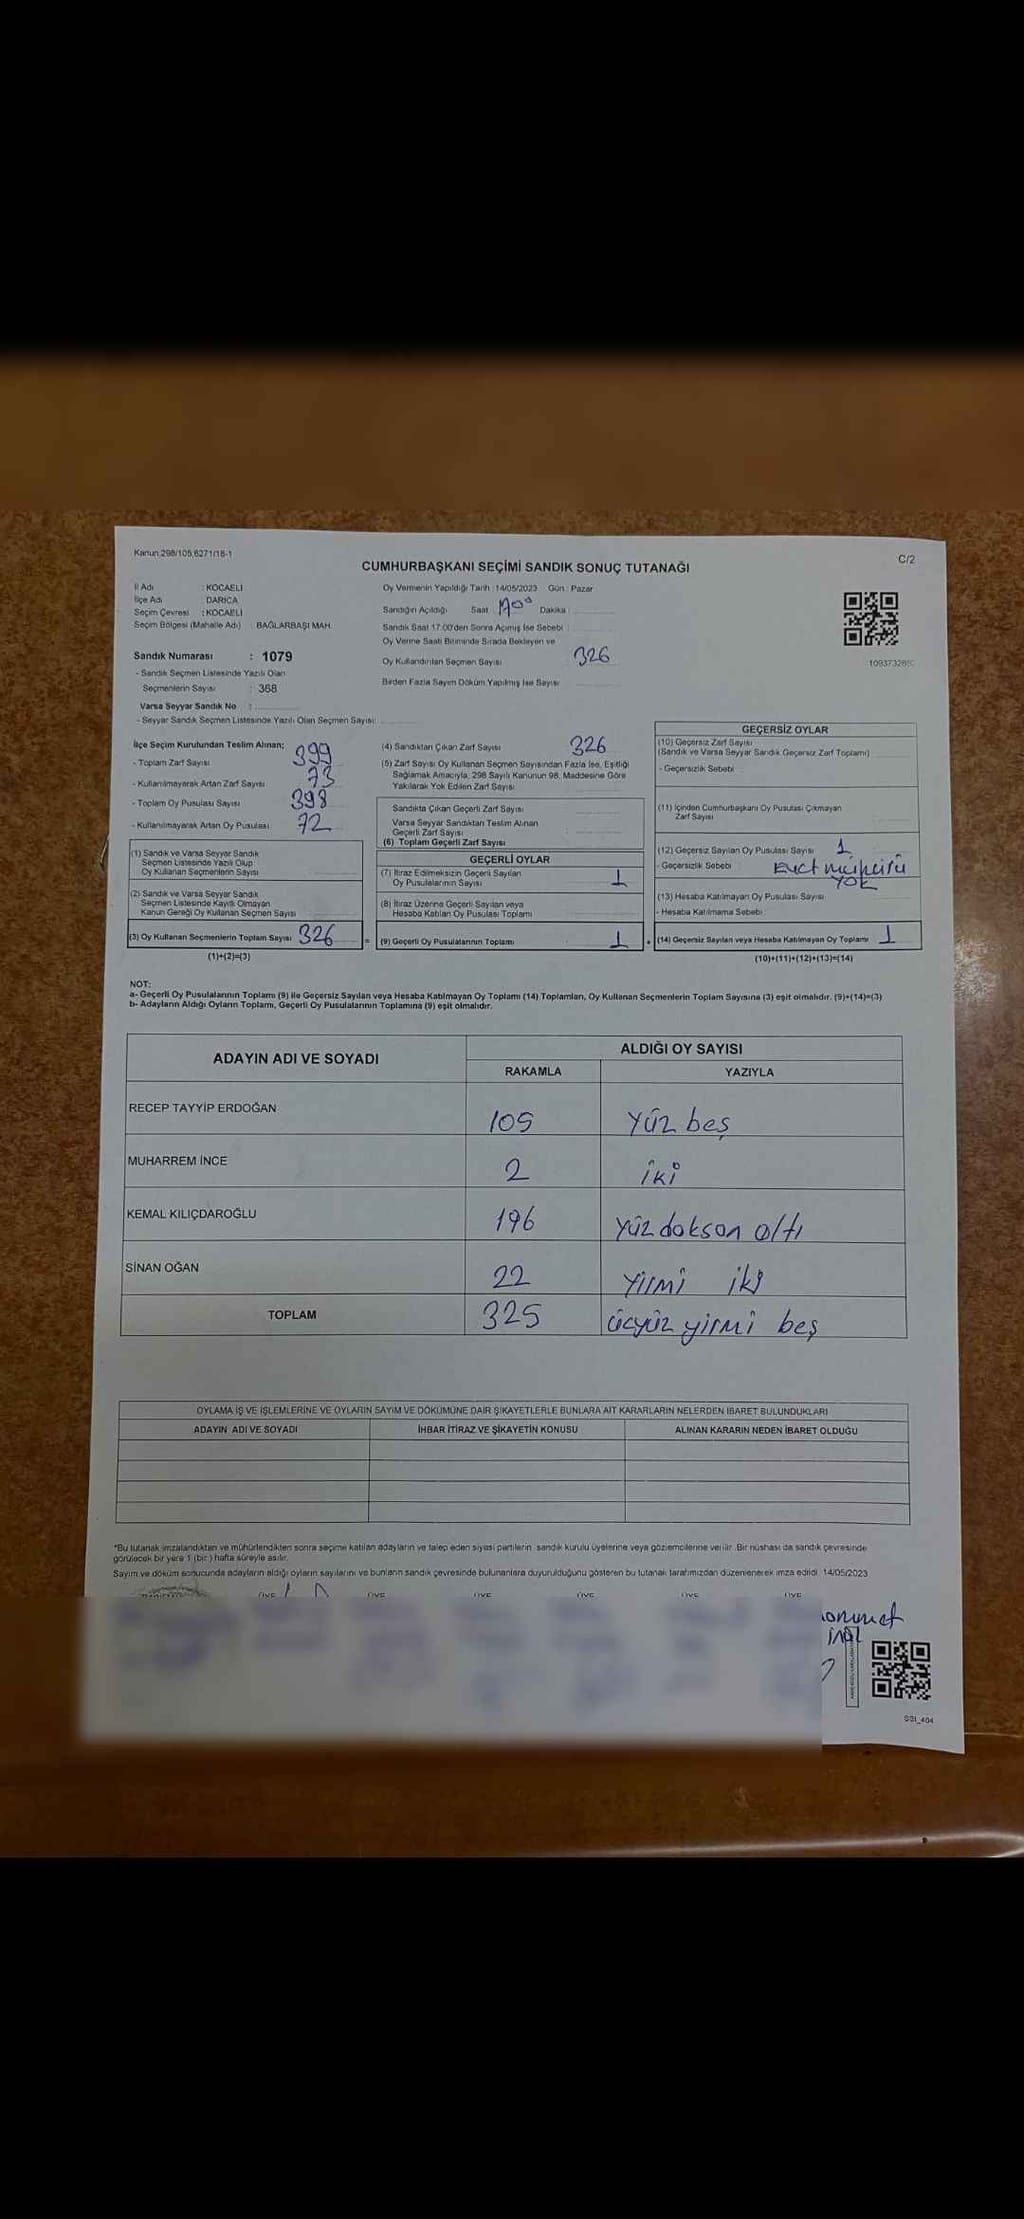 Kanun 298/105,6271/18-1
C/2
CUMHURBAŞKANI SEÇİMİ SANDIK SONUÇ TUTANAĞI
İl Adı : KOCAELİ
İlçe Adı : DARICA
Seçim Çevresi : KOCAELİ
Seçim Bölgesi (Mahalle Adı) : BAĞLARBAŞI MAH.
Sandık Numarası : 1079
- Sandık Seçmen Listesinde Yazılı Olan
Seçmenlerin Sayısı : 368
Varsa Seyyar Sandık No :
- Seyyar Sandık Seçmen Listesinde Yazılı Olan Seçmen Sayısı:
Oy Vermenin Yapıldığı Tarih : 14/05/2023 Gün : Pazar
Sandığın Açıldığı Saat 1700 Dakika :
Sandık Saat 17:00'den Sonra Açımış İse Sebebi :
Oy Verme Saati Bitiminde Sırada Bekleyen ve
Oy Kullandırılan Seçmen Sayısı 326
Birden Fazla Sayım Döküm Yapılmış İse Sayısı
İlçe Seçim Kurulundan Teslim Alınan;
- Toplam Zarf Sayısı 399
- Kullanılmayarak Artan Zarf Sayısı 73
- Toplam Oy Pusulası Sayısı 398
- Kullanılmayarak Artan Oy Pusulası 72
(1) Sandık ve Varsa Seyyar Sandık
Seçmen Listesinde Yazılı Olup
Oy Kullanan Seçmenlerin Sayısı
(2) Sandık ve Varsa Seyyar Sandık
Seçmen Listesinde Kayıtlı Olmayan
Kanun Gereği Oy Kullanan Seçmen Sayısı
(3) Oy Kullanan Seçmenlerin Toplam Sayısı 326
(1)+(2)=(3)
(4) Sandıktan Çıkan Zarf Sayısı 326
(5) Zarf Sayısı Oy Kullanan Seçmen Sayısından Fazla İse, Eşitliği
Sağlamak Amacıyla, 298 Sayılı Kanunun 98. Maddesine Göre
Yakılarak Yok Edilen Zarf Sayısı
Sandıkta Çıkan Geçerli Zarf Sayısı
Varsa Seyyar Sandıktan Teslim Alınan
Geçerli Zarf Sayısı
(6) Toplam Geçerli Zarf Sayısı
GEÇERLİ OYLAR
(7) İtiraz Edilmeksizin Geçerli Sayılan
Oy Pusulalarının Sayısı 1
(8) İtiraz Üzerine Geçerli Sayılan veya
Hesaba Katılan Oy Pusulası Toplamı
= (9) Geçerli Oy Pusulalarının Toplamı 1
GEÇERSİZ OYLAR
(10) Geçersiz Zarf Sayısı
(Sandık ve Varsa Seyyar Sandık Geçersiz Zarf Toplamı)
- Geçersizlik Sebebi
(11) İçinden Cumhurbaşkanı Oy Pusulası Çıkmayan
Zarf Sayısı
(12) Geçersiz Sayılan Oy Pusulası Sayısı 1
- Geçersizlik Sebebi
YOK
(13) Hesaba Katılmayan Oy Pusulası Sayısı
- Hesaba Katılmama Sebebi
+ (14) Geçersiz Sayılan veya Hesaba Katılmayan Oy Toplamı 1
(10)+(11)+(12)+(13)=(14)
NOT:
a- Geçerli Oy Pusulalarının Toplamı (9) ile Geçersiz Sayılan veya Hesaba Katılmayan Oy Toplamı (14) Toplamları, Oy Kullanan Seçmenlerin Toplam Sayısına (3) eşit olmalıdır. (9)+(14)=(3)
b- Adayların Aldığı Oyların Toplamı, Geçerli Oy Pusulalarının Toplamına (9) eşit olmalıdır.
ADAYIN ADI VE SOYADI
ALDIĞI OY SAYISI
RAKAMLA YAZIYLA
RECEP TAYYİP ERDOĞAN 105 yüz beş
MUHARREM İNCE 2 iki
KEMAL KILIÇDAROĞLU 196 yüz doksan altı
SİNAN OĞAN 22 yirmi iki
TOPLAM 325 üçyüz yirmi beş
OYLAMA İŞ VE İŞLEMLERİNE VE OYLARIN SAYIM VE DÖKÜMÜNE DAİR ŞİKAYETLERLE BUNLARA AİT KARARLARIN NELERDEN İBARET BULUNDUKLARI
ADAYIN ADI VE SOYADI İHBAR İTİRAZ VE ŞİKAYETİN KONUSU ALINAN KARARIN NEDEN İBARET OLDUĞU
*Bu tutanak imzalandıktan ve mühürlendikten sonra seçime katılan adayların ve talep eden siyasi partilerin sandık kurulu üyelerine veya gözlemcilerine verilir. Bir nüshası da sandık çevresinde
görülecek bir yere 1 (bir) hafta süreyle asılır.
Sayım ve döküm sonucunda adayların aldığı oyların sayılarını ve bunların sandık çevresinde bulunanlara duyurulduğunu gösteren bu tutanak tarafımızdan düzenlenerek imza edildi. 14/05/2023
ÜYE ÜYE ÜYE ÜYE ÜYE ÜYE
SSI_404